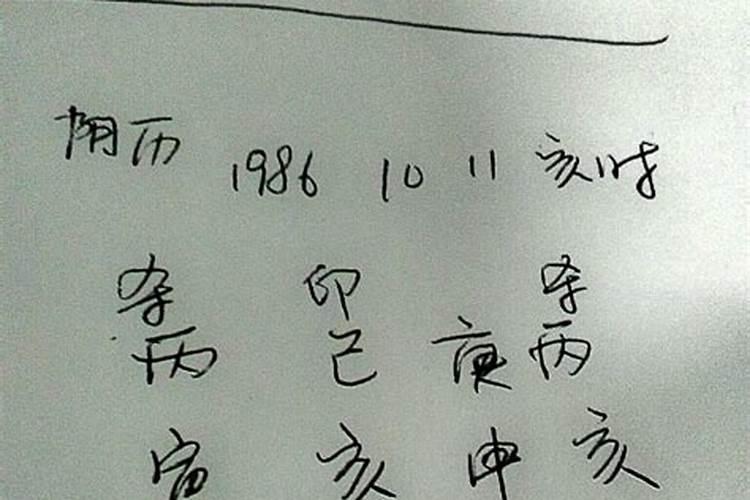 阴历 1986 10 11 亥时
杀 印 杀
丙 己 庚 丙
寅 亥 申 亥